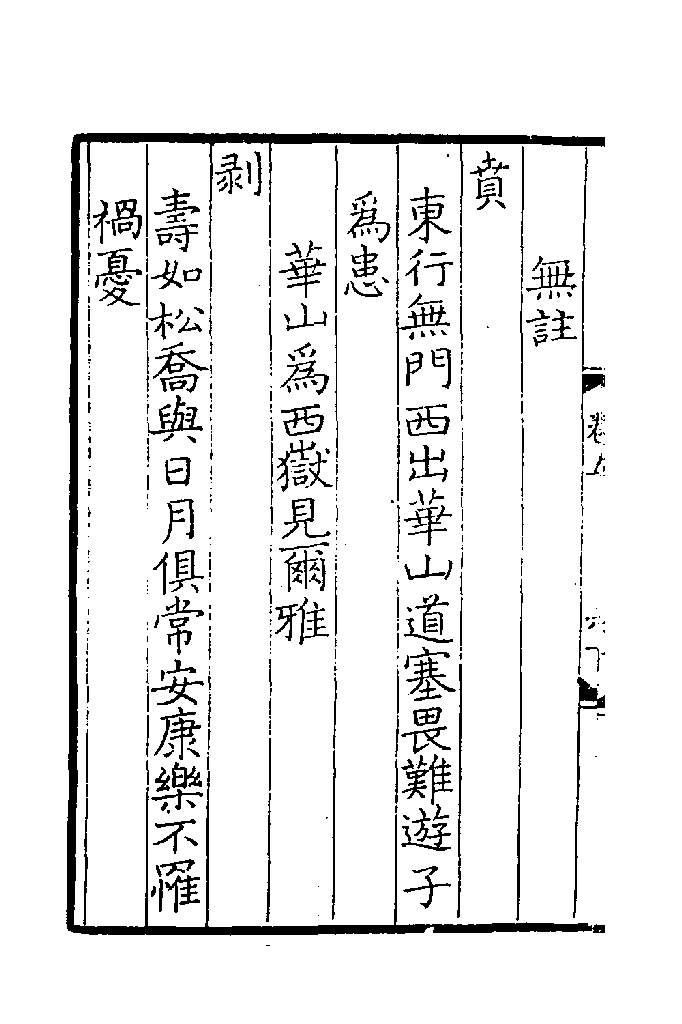 無註
賁
東行無門西出華山道塞畏難遊子
爲患
華山爲西嶽見爾雅
剥
壽如松喬與日月俱常安康樂不罹
禍憂